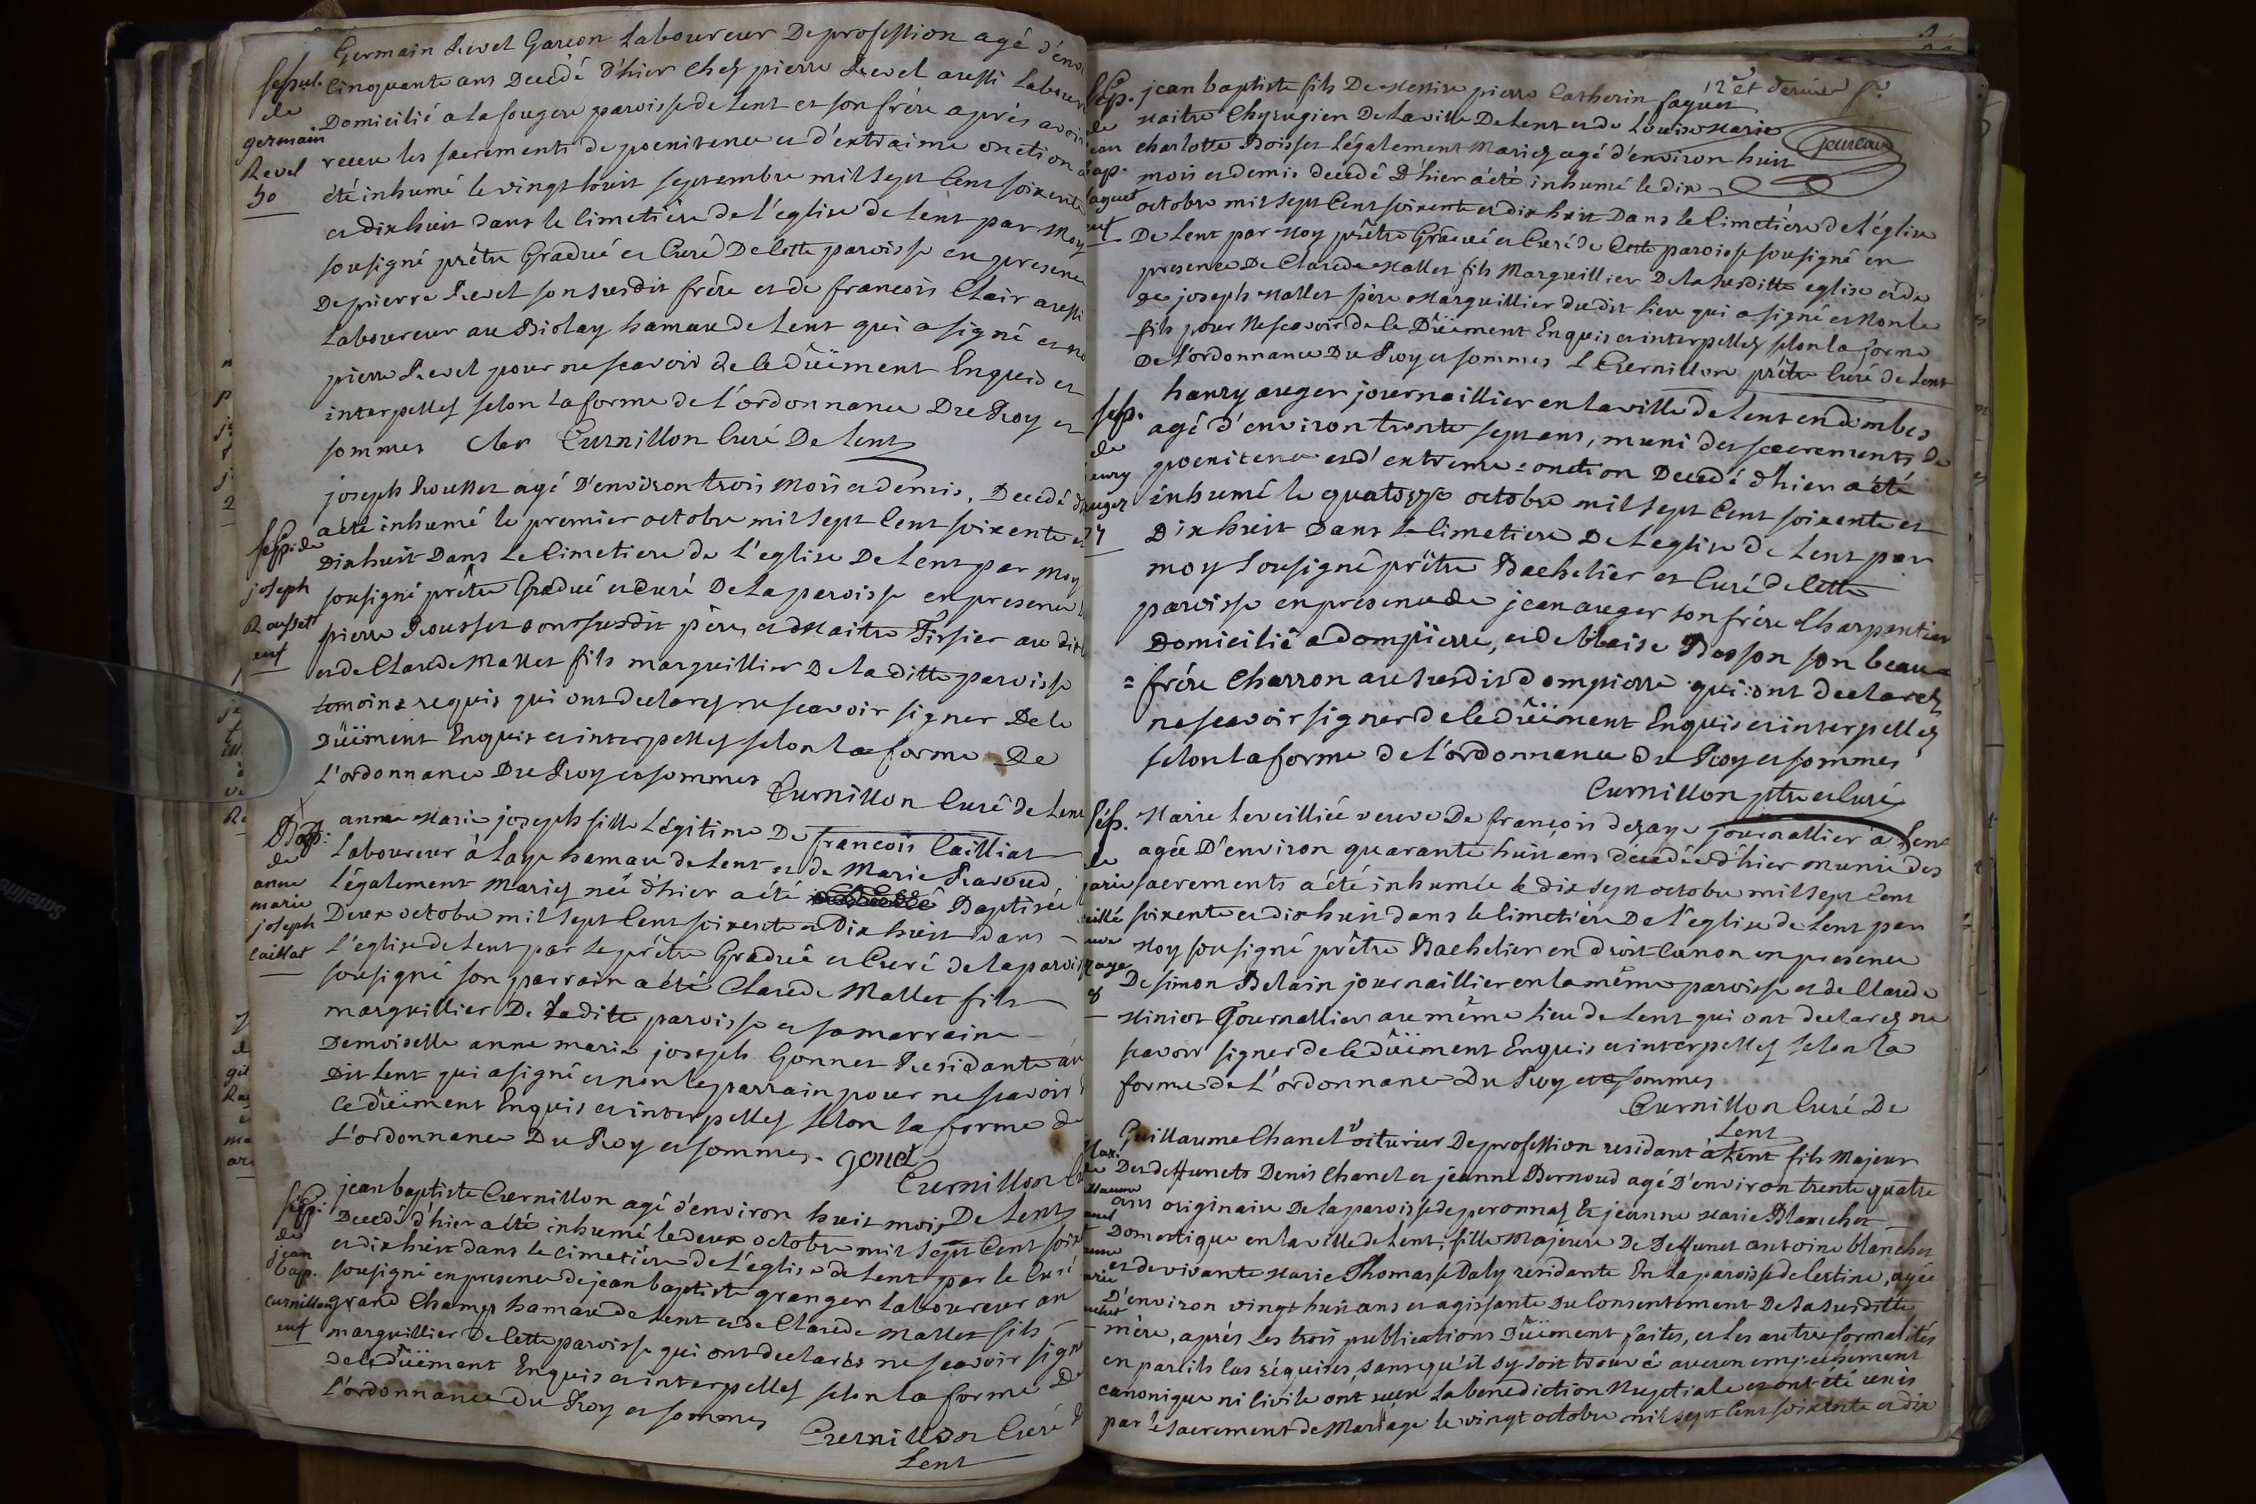 Germain Revel Garcon Laboureur De profession agé d'env
Sepul. Cinquante ans Decedé d'hier Chez pierre Revel aussi Labour
de Domicilié a la fougere paroisse de Lent et son frére aprés avoir
germain receu les sacrements de poenitence et d'extraime onction a
Revel été inhumé le vingt huit septembre mil sept Cent soixente
50 et dix huit dans le Cimetiére de l'eglise de Lent par Moy
sousigné prêtre Gradué et Curé De Cette paroisse en presence
De pierre Revel son susdit frére et de francois Clair aussi
Laboureur au Biolay hamau de Lent qui a signé et no
pierre Revel pour ne scavoir de ce dûëment Enquis et
interpellez selon la forme de l'ordonnance Du Roy et
sommes Cler Curnillon Curé De Lent
joseph Rousset agé D'environ trois Mois et demis, Decedé d
a été inhumé le premier octobre mil sept Cent soixente et
Sep: de Dix huit Dans Le Cimetiere de L'eglise De Lent par Moy
joseph sousigné prêtre Gradué et Curé De la paroisse en presence
Rousset pierre Rousset son susdit pére, et Maitre Tissier au dit
enf et de Claude Mallet fils marguillier De la ditte paroisse
temoins requis qui ont declarez ne scavoir signer De Ce
Dûëment Enquis et interpellez selon la forme De
L'ordonnance Du Roy et sommes Curnillon Curé de Lent
Bap: anne Marie joseph fille Légitime De francois Cailliat
de Laboureur à Laye hamau de Lent et de Marie Ravoud
anne Légalement Mariez née d'hier a été Baptisée
marie Deux octobre mil sept Cent soixente et Dix huit dans
joseph L'eglise de Lent par Le prêtre Gradué et Curé de la parois
Caillat sousigné son parrain a été Claude Mallet fils
marguillier De Laditte paroisse et sa marraine
Demoiselle anne marie joseph Gonnet Residante au
Dit Lent qui a signé et non le parrain pour ne scavoir
Ce dûëment Enquis et interpellez selon la forme de
L'ordonnance Du Roy et sommes. gonet
Curnillon Cu
Sep: jean baptiste Curnillon agé d'environ huit mois De Lent
de Decedé d'hier a été inhumé le deux octobre mil Sept Cent soix
jean et dix huit dans le Cimetiére de L'église de Lent par le Curé
bap. sousigné en presence de jean baptiste granger Laboureur au
Curnillon grand Champ hamau de Lent et de Claude Mallet fils
enf marguillier de Cette paroisse qui ont declarés ne scavoir sign
de Ce dûëment Enquis et interpellez selon la forme De
L'ordonnance du Roy et sommes
Curnillon Curé
Lent
12e et dernier f.
Sep. jean baptiste fils De Messire pierre Catherin faguet
de Maitre Chyrugien De la ville De Lent et de Louise Marie
jean charlotte Boisset Légalement Mariez agé d'environ huit
bap. mois et demis decedé D'hier a été inhumé le dix
faguet octobre mil sept Cent soixente et dix huit Dans le Cimetiére de l'église
enf De Lent par Moy prêtre Gradué et Curé de Cette paroisse sousigné en
presence De Claude Mallet fils Marguillier De la susditte eglise et de
de joseph Mallet pére Marguillier du dit Lieu qui a signé et Non le
fils pour Ne scavoir de Ce Dûëment Enquis et interpellez selon la forme
De L'ordonnance Du Roy et sommes Curnillon prêtre Curé de Lent
Sep. hanry auger journaillier en La ville de Lent en dombes
de agé d'environ trente sept ans, muni des sacrements De
poenitence et d'extreme=onction Decedé d'hier a été
auger inhumé le quatorze octobre mil sept Cent soixente et
37 Dix huit Dans Le Cimetiere De L'eglise de Lent par
moy Sousigné prêtre Bachelier et Curé de Cette
paroisse en presence de jean auger son frére Charpentier
Domicilié a dompierre, et de blaise Bosson son beau=
=frére Charron au susdit dompierre qui ont declarez
ne scavoir signer de Ce dûëment Enquis et interpellez
selon la forme de L'ordonnance du Roy et sommes
Curnillon ptre et Curé
Sép. Marie Leveilliée veuve De françois dezaye journallier a Lent
de agée D'environ quarante huit ans décedée d'hier Munie des
marie sacrements a été inhumée le dix sept octobre mil sept Cent
soixente et dix huit dans le Cimetiére De l'église de Lent par
Moy sousigné prêtre Bachelier en droit Canon en presence
De simon Belain journaillier en la même paroisse et de Claude
Miniot Journallier au même Lieu de Lent qui ont declarez ne
scavoir signer de Ce dûëment Enquis et interpellez selon la
forme de L'ordonnance Du Roy et sommes
Curnillon Curé De
Lent
Mar. Guillaume Chanel Voiturier De profession residant à Lent fils Majeur
de Des deffuncts Denis Chanel et jeanne Bernoud agé D'environ trente quatre
ans originaire De la paroisse de peronnas Et jeanne Marie Blanchet
Domestique en la ville de Lent, fille Majeure De Deffunct antoine blanchet
et de vivante Marie Thomasse Daly residante En la paroisse de Certine, agée
D'environ vingt huit ans et agissante Du Consentement De la susditte
mére, aprés Les trois publications Dûëment faites, et Les autres formalités
en pareils Cas réquises, sans qu'il sy soit trouvé aucun empechement
canonique ni Civile ont receu La benediction Nuptiale et ont été unis
par le sacrement de Mariage le vingt octobre mil sept Cent soixente et dix